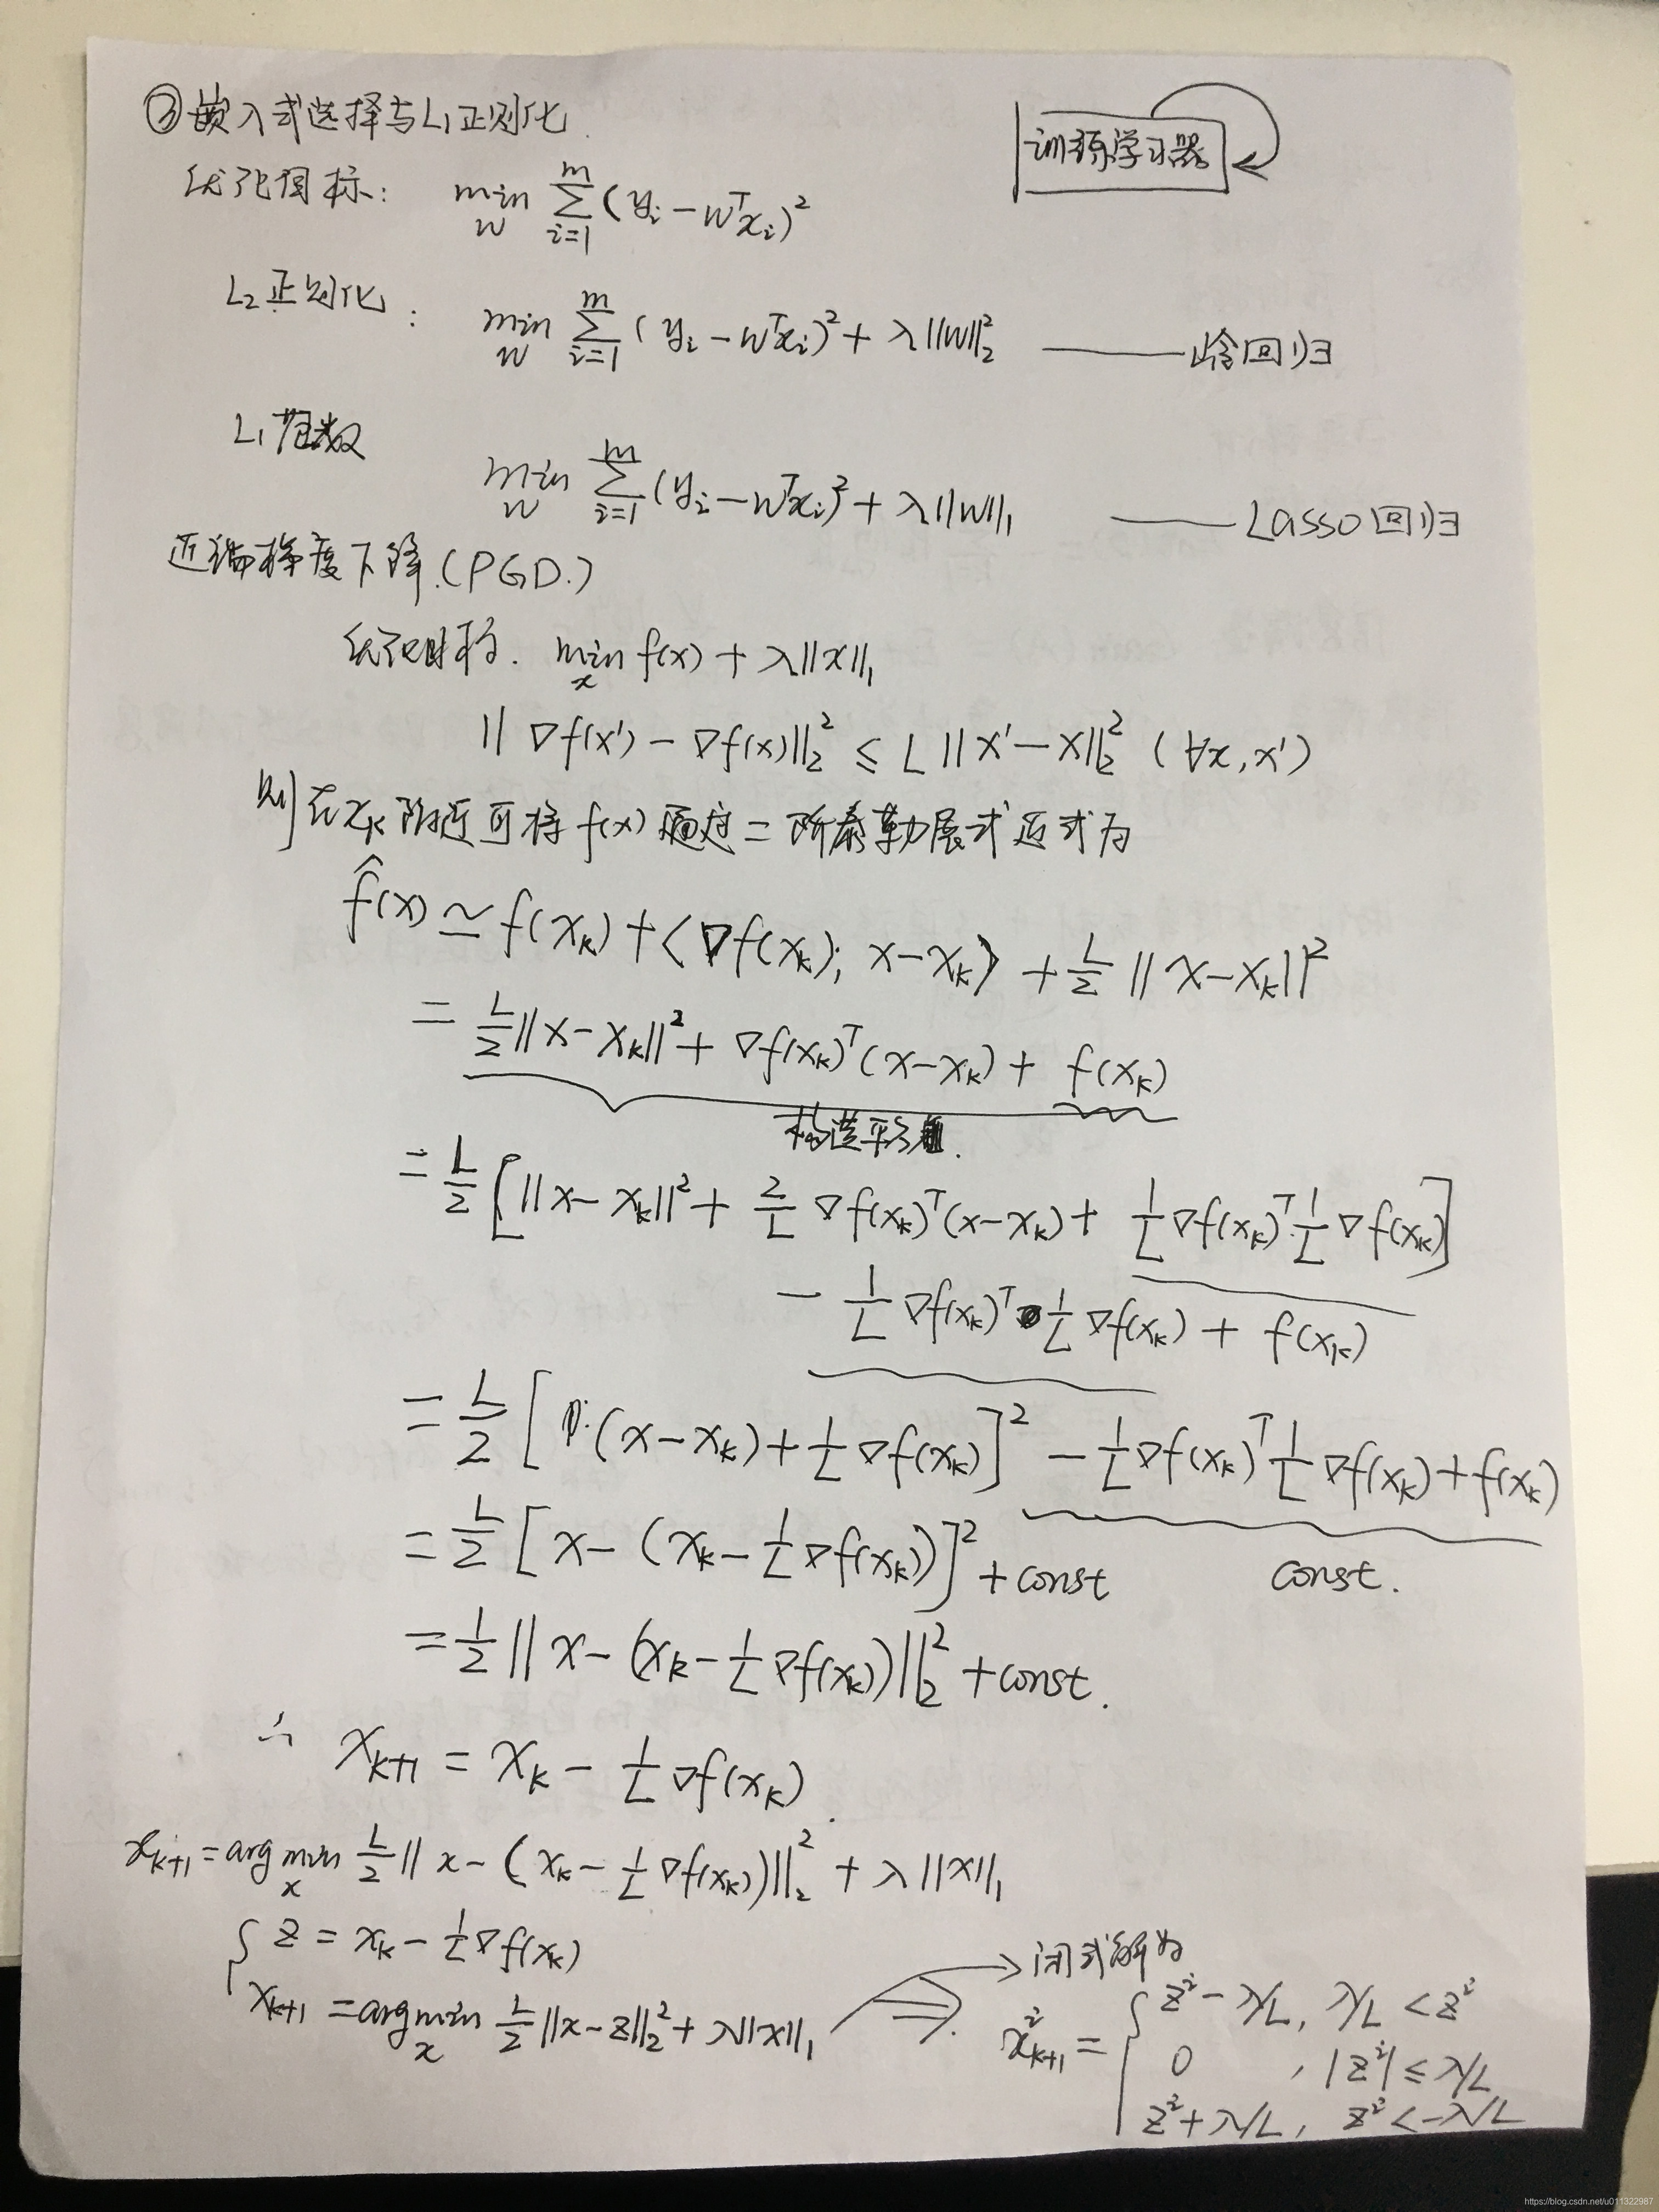 ③嵌入式选择与L₁正则化
训练学习器
优化目标: min_w ∑_{i=1}^{m} (y_i − w^T x_i)^2
L₂正则化: min_w ∑_{i=1}^{m} (y_i − w^T x_i)^2 + λ||w||_2^2 —— 岭回归
L₁范数 min_w ∑_{i=1}^{m} (y_i − w^T x_i)^2 + λ||w||_1 —— Lasso回归
近端梯度下降.(PGD.)
优化目标. min_x f(x) + λ||x||_1
|| ∇f(x') − ∇f(x)||_2^2 ≤ L ||x' − x||_2^2 (∀x, x')
则在x_k附近可将f(x)通过二阶泰勒展式近式为
f̂(x) ≃ f(x_k) + <∇f(x_k); x−x_k> + L/2 ||x−x_k||^2
= L/2 ||x−x_k||^2 + ∇f(x_k)^T (x−x_k) + f(x_k)
构造平方
= L/2 [||x−x_k||^2 + 2/L ∇f(x_k)^T (x−x_k) + 1/L ∇f(x_k)^T · 1/L ∇f(x_k)]
− 1/L ∇f(x_k)^T 1/L ∇f(x_k) + f(x_k)
= L/2 [(x−x_k) + 1/L ∇f(x_k)]^2 − 1/L ∇f(x_k)^T 1/L ∇f(x_k) + f(x_k)
= L/2 [x − (x_k − 1/L ∇f(x_k))]^2 + const const.
= 1/2 ||x − (x_k − 1/L ∇f(x_k))||_2^2 + const.
∴ x_{k+1} = x_k − 1/L ∇f(x_k).
x_{k+1} = arg min_x L/2 ||x − (x_k − 1/L ∇f(x_k))||_2^2 + λ||x||_1
{ z = x_k − 1/L ∇f(x_k)
x_{k+1} = arg min_x L/2 ||x − z||_2^2 + λ||x||_1 ⇒
→ 闭式解为
x_{k+1}^i = { z^i − λ/L, λ/L < z^i
0 , |z^i| ≤ λ/L
z^i + λ/L, z^i < −λ/L
https://blog.csdn.net/u011322987